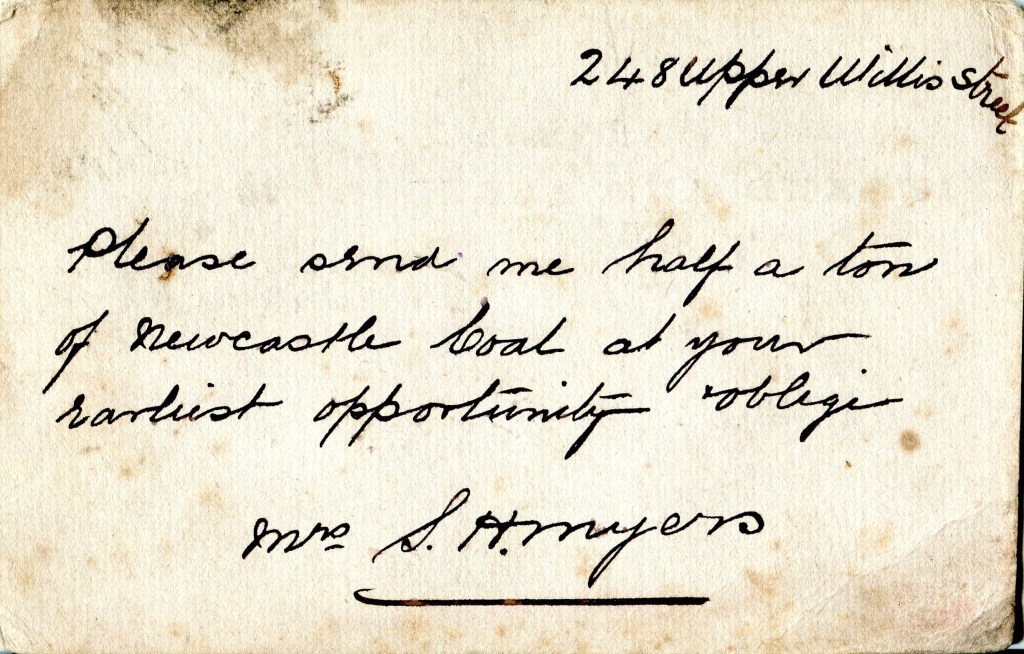 248 Upper Willis Street
Please send me half a ton
of Newcastle Coal at your
earliest opportunity & oblige
Mrs S. H. Myers